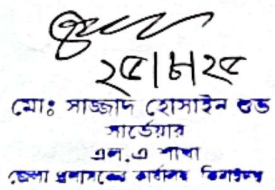 ২৫।৮।২৫
মোঃ সাজ্জাদ হোসাইন শুভ
সার্ভেয়ার
এল.এ শাখা
জেলা প্রশাসকের কার্যালয়